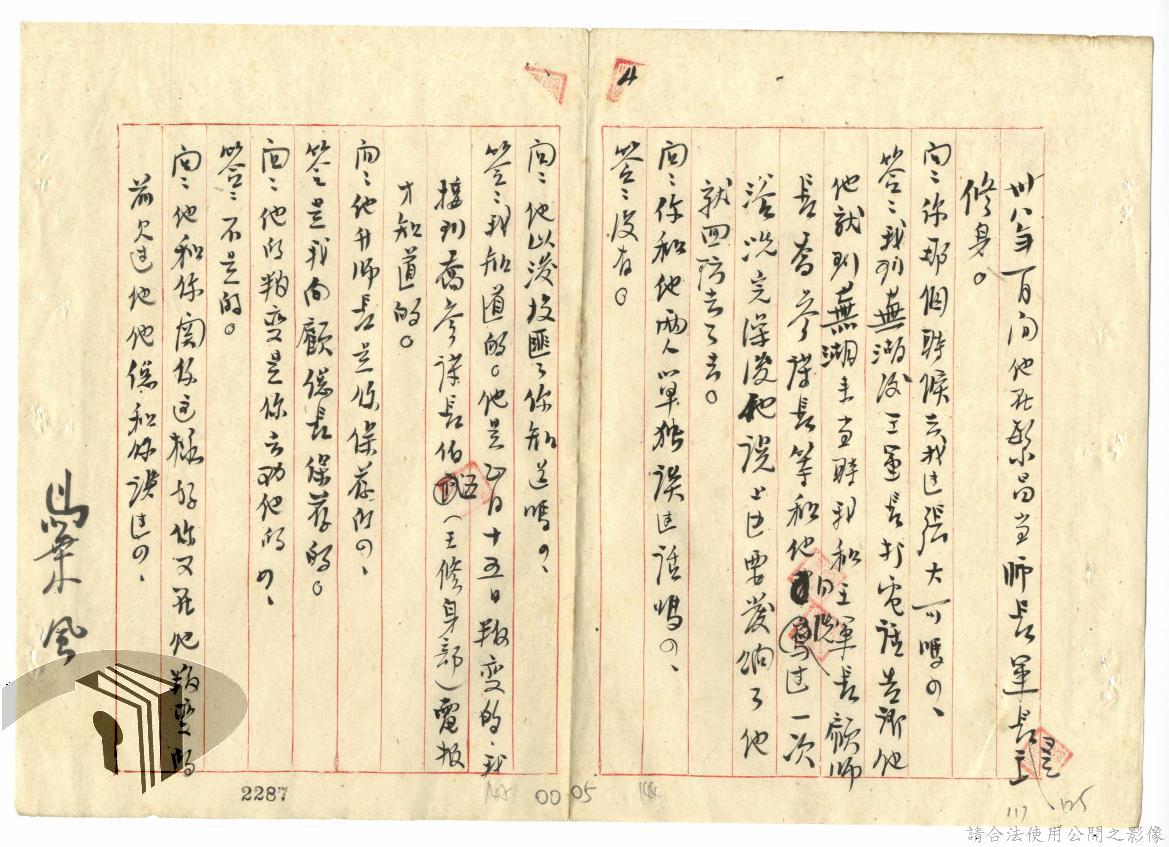 4
卅八年一月間他在繁昌當師長軍長王
修身。
問:你那個時候去找過張大可嗎?
答:我到蕪湖後王軍長打電話告訴他
他就到蕪湖來當時我和王軍長顧師
長喬參謀長等和他 過一次
浴洗完澡後他說上邊要發餉了他
就回防去了去。
問:你和他兩人單獨談過話嗎?
答:沒有。
問:他以後投匪了你知道嗎?
答:我知道的。他是 月十五日叛變的,我
接到喬參謀長伯 (王修身部)電報
才知道的。
問:他升師長是你保荐的?
答:是我向顧總長保荐的。
問:他的叛變是你去勸他的?
答:不是的。
問:他和你關係這樣好你又在他叛變的
前見過他他總和你談過?
2287
00 05
117
125
請合法使用公開之影像